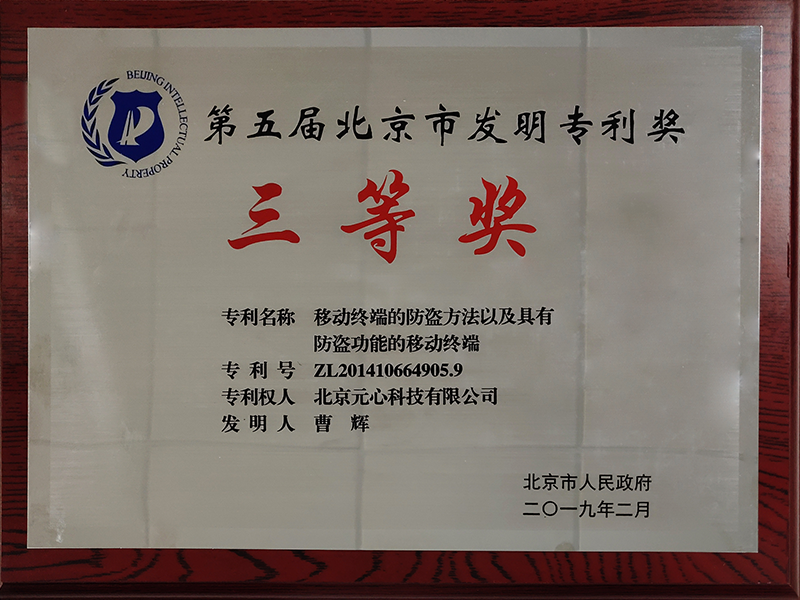 BEIJING INTELLECTUAL PROPERTY
第五届北京市发明专利奖
三等奖
专利名称 移动终端的防盗方法以及具有
防盗功能的移动终端
专利号 ZL201410664905.9
专利权人 北京元心科技有限公司
发明人 曹 辉
北京市人民政府
二〇一九年二月